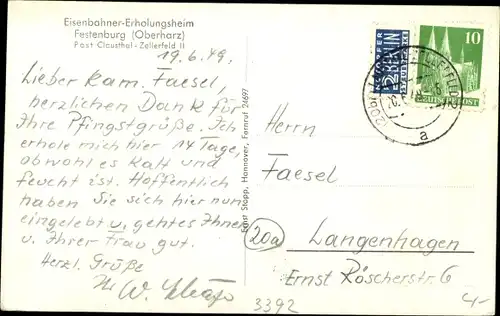 Eisenbahner-Erholungsheim
Festenburg (Oberharz)
Post Clausthal-Zellerfeld II
19.6.49.
Lieber Kam. Faesel,
herzlichen Dank für
Ihre Pfingstgrüße. Ich
erhole mich hier 14 Tage,
obwohl es kalt und
feucht ist. Hoffentlich
haben Sie sich hier nun
eingelebt u. geht es Ihnen
u. Ihrer Frau gut.
Herzl. Grüße
W.
Ernst Stopp, Hannover, Fernruf 24697
NOTOPFER
2 BERLIN
STEUERMARKE
10
DEUTSCHE POST
a
Herrn
Faesel
20a
Langenhagen
Ernst Röscherstr. 6
3392